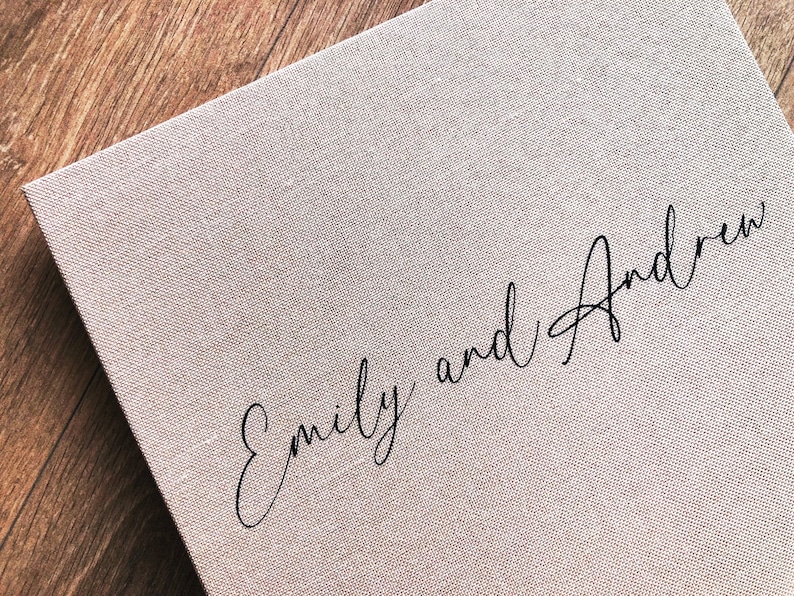 Emily and Andrew